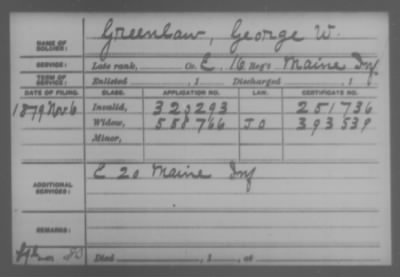 NAME OF SOLDIER: Greenlaw, George W.
SERVICE: Late rank, Co. E, 16 Reg't Maine Inf
TERM OF SERVICE: Enlisted , 1 Discharged , 1
DATE OF FILING. CLASS. APPLICATION NO. LAW. CERTIFICATE NO.
1879 Nov. 6 Invalid, 323293 251736
Widow, 558766 J O 393539
Minor,
ADDITIONAL SERVICES: E 20 Maine Inf
REMARKS:
Died , 1 , at